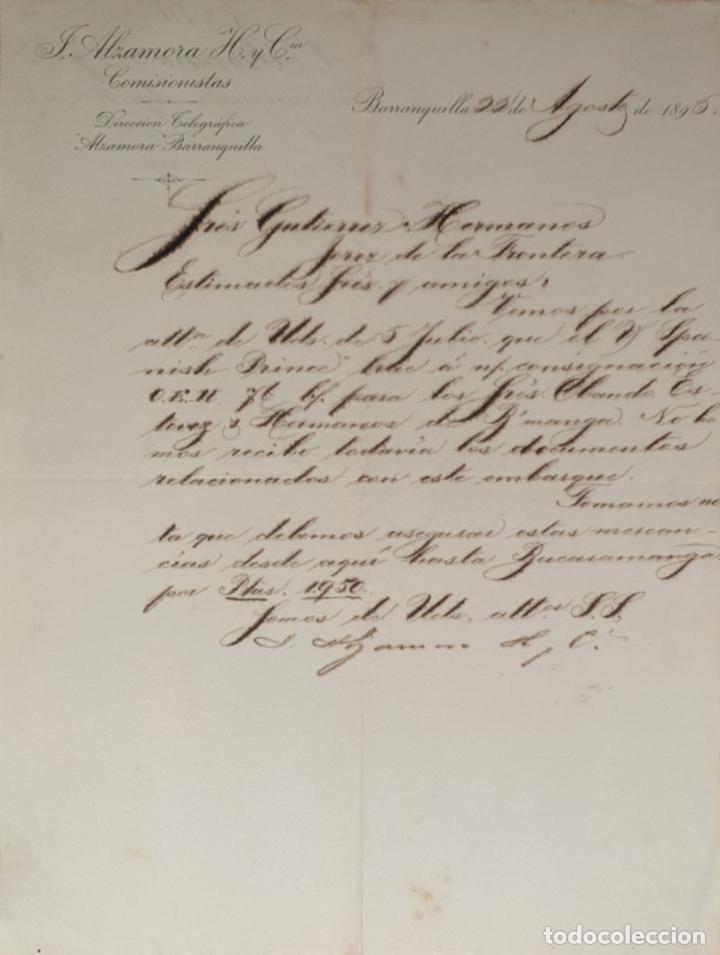 J. Alzamora H. y Cia
Comisionistas
Direccion Telegráfica
"Alzamora" Barranquilla
Barranquilla 22 de Agosto de 1895.
Sres Gutierrez Hermanos
Jerez de la Frontera
Estimados Sres. y amigos:
Vemos por la
atta de Uds. de 5 Julio que el "Spa-
nish Prince" trae á n/ consignación
O.E.H 76 b/. para los Sres. Obando, Es-
tevez y Hermanos de B'manga. No he-
mos recibo todavía los documentos
relacionados con este embarque.
Tomamos no
ta que debemos asegurar estas mercan-
cías desde aquí hasta Bucaramanga
por Ptas. 1.950.
Somos de Uds. attos S.S.
J. Alzamora H y Ca
todocoleccion